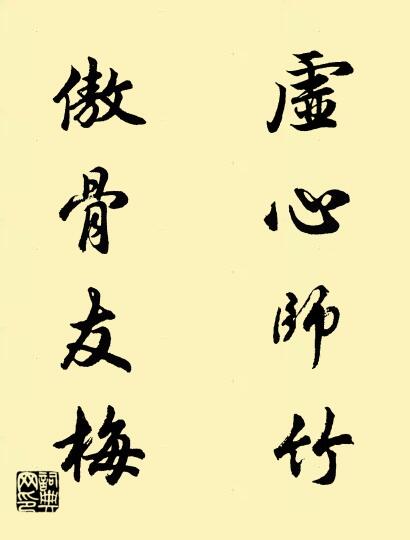 虛心師竹
傲骨友梅
詞典网印